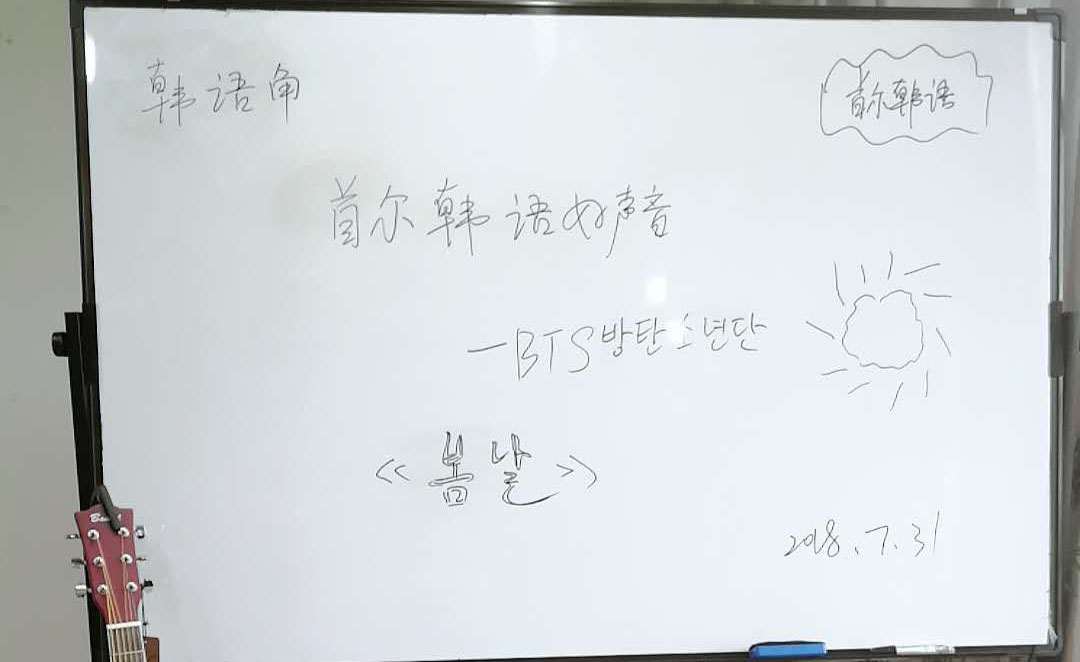 韩语角
首尔韩语
首尔韩语好声音
—BTS방탄소년단
<<봄날>>
2018.7.31